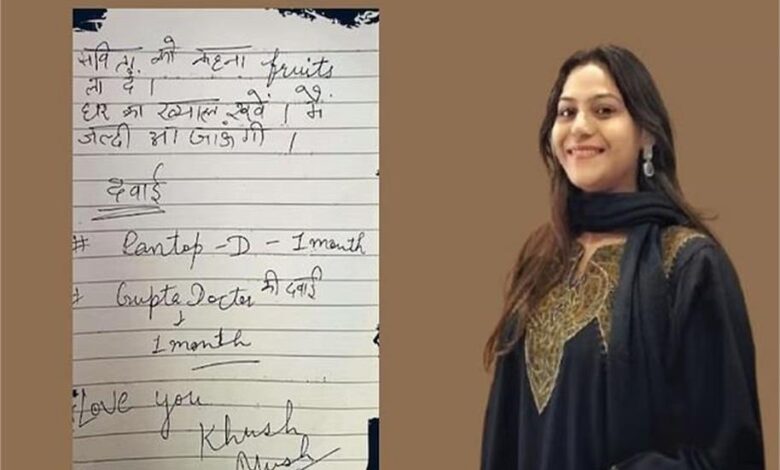 सविता को कहना fruits
ला दे ।
घर का ख्याल रखें । मैं
जल्दी आ जाऊंगी ।
दवाई
# Pantop-D - 1 month
Gupta Doctor की दवाई
↓
1 month
Love you
Khush